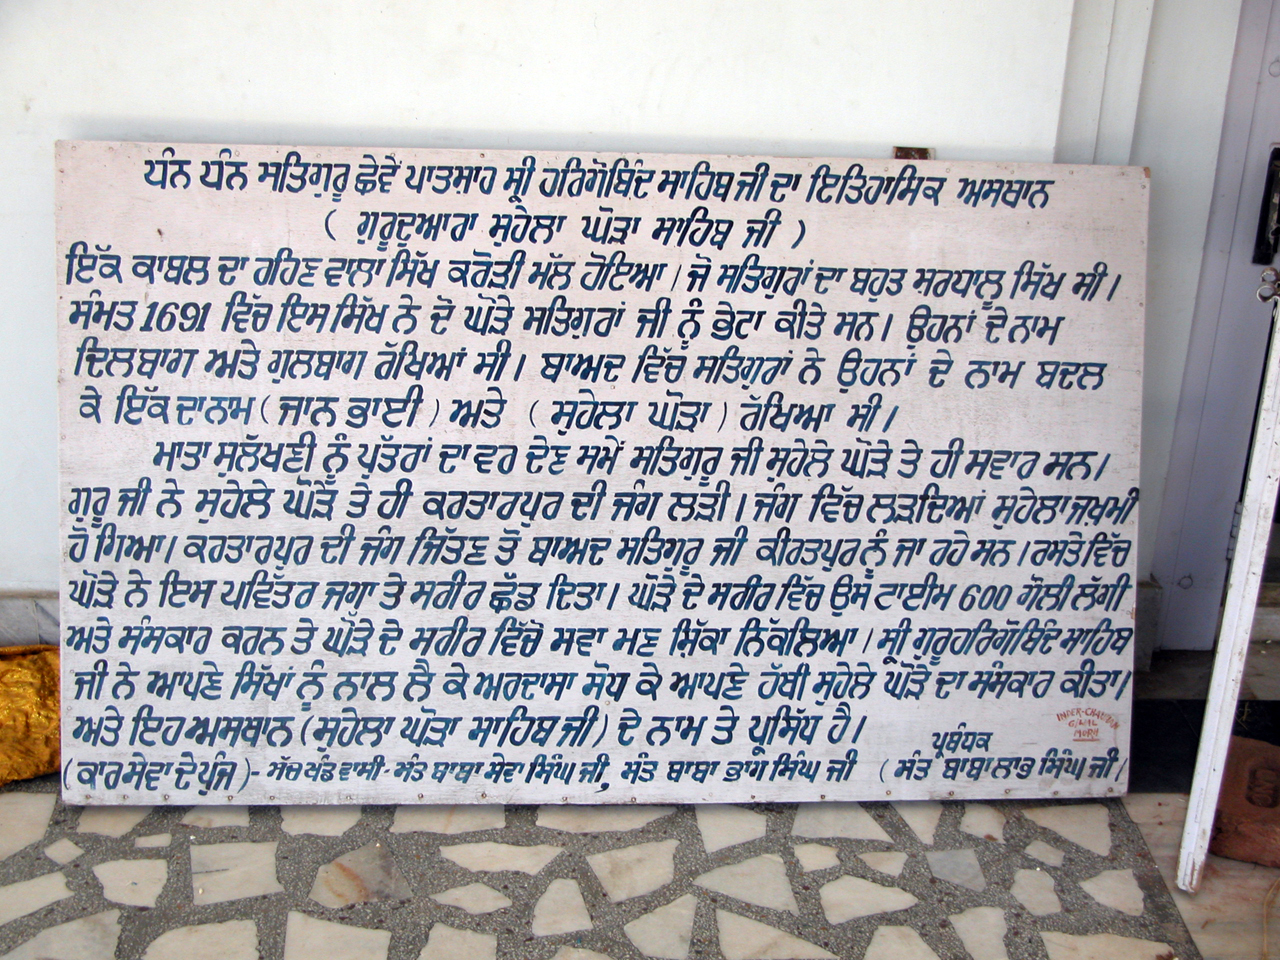 ਧੰਨ ਧੰਨ ਸਤਿਗੁਰੂ ਛੇਵੇਂ ਪਾਤਸ਼ਾਹ ਸ੍ਰੀ ਹਰਿਗੋਬਿੰਦ ਸਾਹਿਬ ਜੀ ਦਾ ਇਤਿਹਾਸਿਕ ਅਸਥਾਨ
( ਗੁਰੂਦੁਆਰਾ ਸੁਹੇਲਾ ਘੋੜਾ ਸਾਹਿਬ ਜੀ )
ਇੱਕ ਕਾਬਲ ਦਾ ਰਹਿਣ ਵਾਲਾ ਸਿੱਖ ਕਰੋੜੀ ਮੱਲ ਹੋਇਆ । ਜੋ ਸਤਿਗੁਰਾਂ ਦਾ ਬਹੁਤ ਸਰਧਾਲੂ ਸਿੱਖ ਸੀ ।
ਸੰਮਤ 1691 ਵਿੱਚ ਇਸ ਸਿੱਖ ਨੇ ਦੋ ਘੋੜੇ ਸਤਿਗੁਰਾਂ ਜੀ ਨੂੰ ਭੇਟਾ ਕੀਤੇ ਸਨ । ਉਹਨਾਂ ਦੇ ਨਾਮ
ਦਿਲਬਾਗ ਅਤੇ ਗੁਲਬਾਗ ਰੱਖਿਆਂ ਸੀ । ਬਾਅਦ ਵਿੱਚ ਸਤਿਗੁਰਾਂ ਨੇ ਉਹਨਾਂ ਦੇ ਨਾਮ ਬਦਲ
ਕੇ ਇੱਕ ਦਾ ਨਾਮ ( ਜਾਨ ਭਾਈ ) ਅਤੇ ( ਸੁਹੇਲਾ ਘੋੜਾ ) ਰੱਖਿਆ ਸੀ ।
ਮਾਤਾ ਸੁਲੱਖਣੀ ਨੂੰ ਪੁੱਤਰਾਂ ਦਾ ਵਰ ਦੇਣ ਸਮੇਂ ਸਤਿਗੁਰੂ ਜੀ ਸੁਹੇਲੇ ਘੋੜੇ ਤੇ ਹੀ ਸਵਾਰ ਸਨ ।
ਗੁਰੂ ਜੀ ਨੇ ਸੁਹੇਲੇ ਘੋੜੇ ਤੇ ਹੀ ਕਰਤਾਰਪੁਰ ਦੀ ਜੰਗ ਲੜੀ । ਜੰਗ ਵਿੱਚ ਲੜਦਿਆਂ ਸੁਹੇਲਾ ਜਖ਼ਮੀ
ਹੋ ਗਿਆ । ਕਰਤਾਰਪੁਰ ਦੀ ਜੰਗ ਜਿੱਤਣ ਤੋਂ ਬਾਅਦ ਸਤਿਗੁਰੂ ਜੀ ਕੀਰਤਪੁਰ ਨੂੰ ਜਾ ਰਹੇ ਸਨ । ਰਸਤੇ ਵਿੱਚ
ਘੋੜੇ ਨੇ ਇਸ ਪਵਿੱਤਰ ਜਗਾ ਤੇ ਸਰੀਰ ਛੱਡ ਦਿਤਾ । ਘੋੜੇ ਦੇ ਸਰੀਰ ਵਿੱਚ ਉਸ ਟਾਈਮ 600 ਗੋਲੀ ਲੱਗੀ
ਅਤੇ ਸੰਸਕਾਰ ਕਰਨ ਤੇ ਘੋੜੇ ਦੇ ਸਰੀਰ ਵਿੱਚੋ ਸਵਾ ਮਣ ਸ਼ਿੱਕਾ ਨਿੱਕਲਿਆ । ਸ੍ਰੀ ਗੁਰੂ ਹਰਿਗੋਬਿੰਦ ਸਾਹਿਬ
ਜੀ ਨੇ ਆਪਣੇ ਸਿੱਖਾਂ ਨੂੰ ਨਾਲ ਲੈ ਕੇ ਅਰਦਾਸਾ ਸੋਧ ਕੇ ਆਪਣੇ ਹੱਥੀ ਸੁਹੇਲੇ ਘੋੜੇ ਦਾ ਸੰਸਕਾਰ ਕੀਤਾ ।
ਅਤੇ ਇਹ ਅਸਥਾਨ ( ਸੁਹੇਲਾ ਘੋੜਾ ਸਾਹਿਬ ਜੀ ) ਦੇ ਨਾਮ ਤੇ ਪ੍ਰਸਿੱਧ ਹੈ ।
INDER-CHAUHAN
MORH
ਪ੍ਰਬੰਧਕ
(ਕਾਰਸੇਵਾ ਦੇ ਪੁੰਜ) - ਸੱਚ ਖੰਡ ਵਾਸੀ - ਸੰਤ ਬਾਬਾ ਸੇਵਾ ਸਿੰਘ ਜੀ, ਸੰਤ ਬਾਬਾ ਭਾਗ ਸਿੰਘ ਜੀ ( ਸੰਤ ਬਾਬਾ ਲਾਭ ਸਿੰਘ ਜੀ )